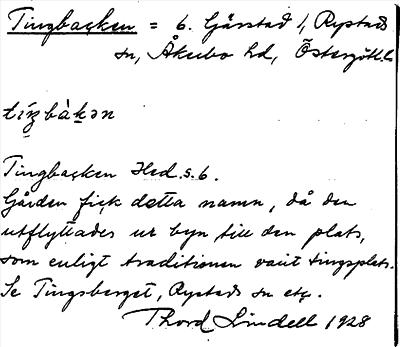 Tingbacken = 6. Gärstad 1, Rystads
sn, Åkerbo hd, Östergötl.
tíŋbàkən
Tingbacken Hed. s. 6.
Gården fick detta namn, då den
utflyttades ur byn till den plats,
som enligt traditionen varit tingsplats.
Se Tingsberget, Rystads sn etc.
Thord Lindell 1928